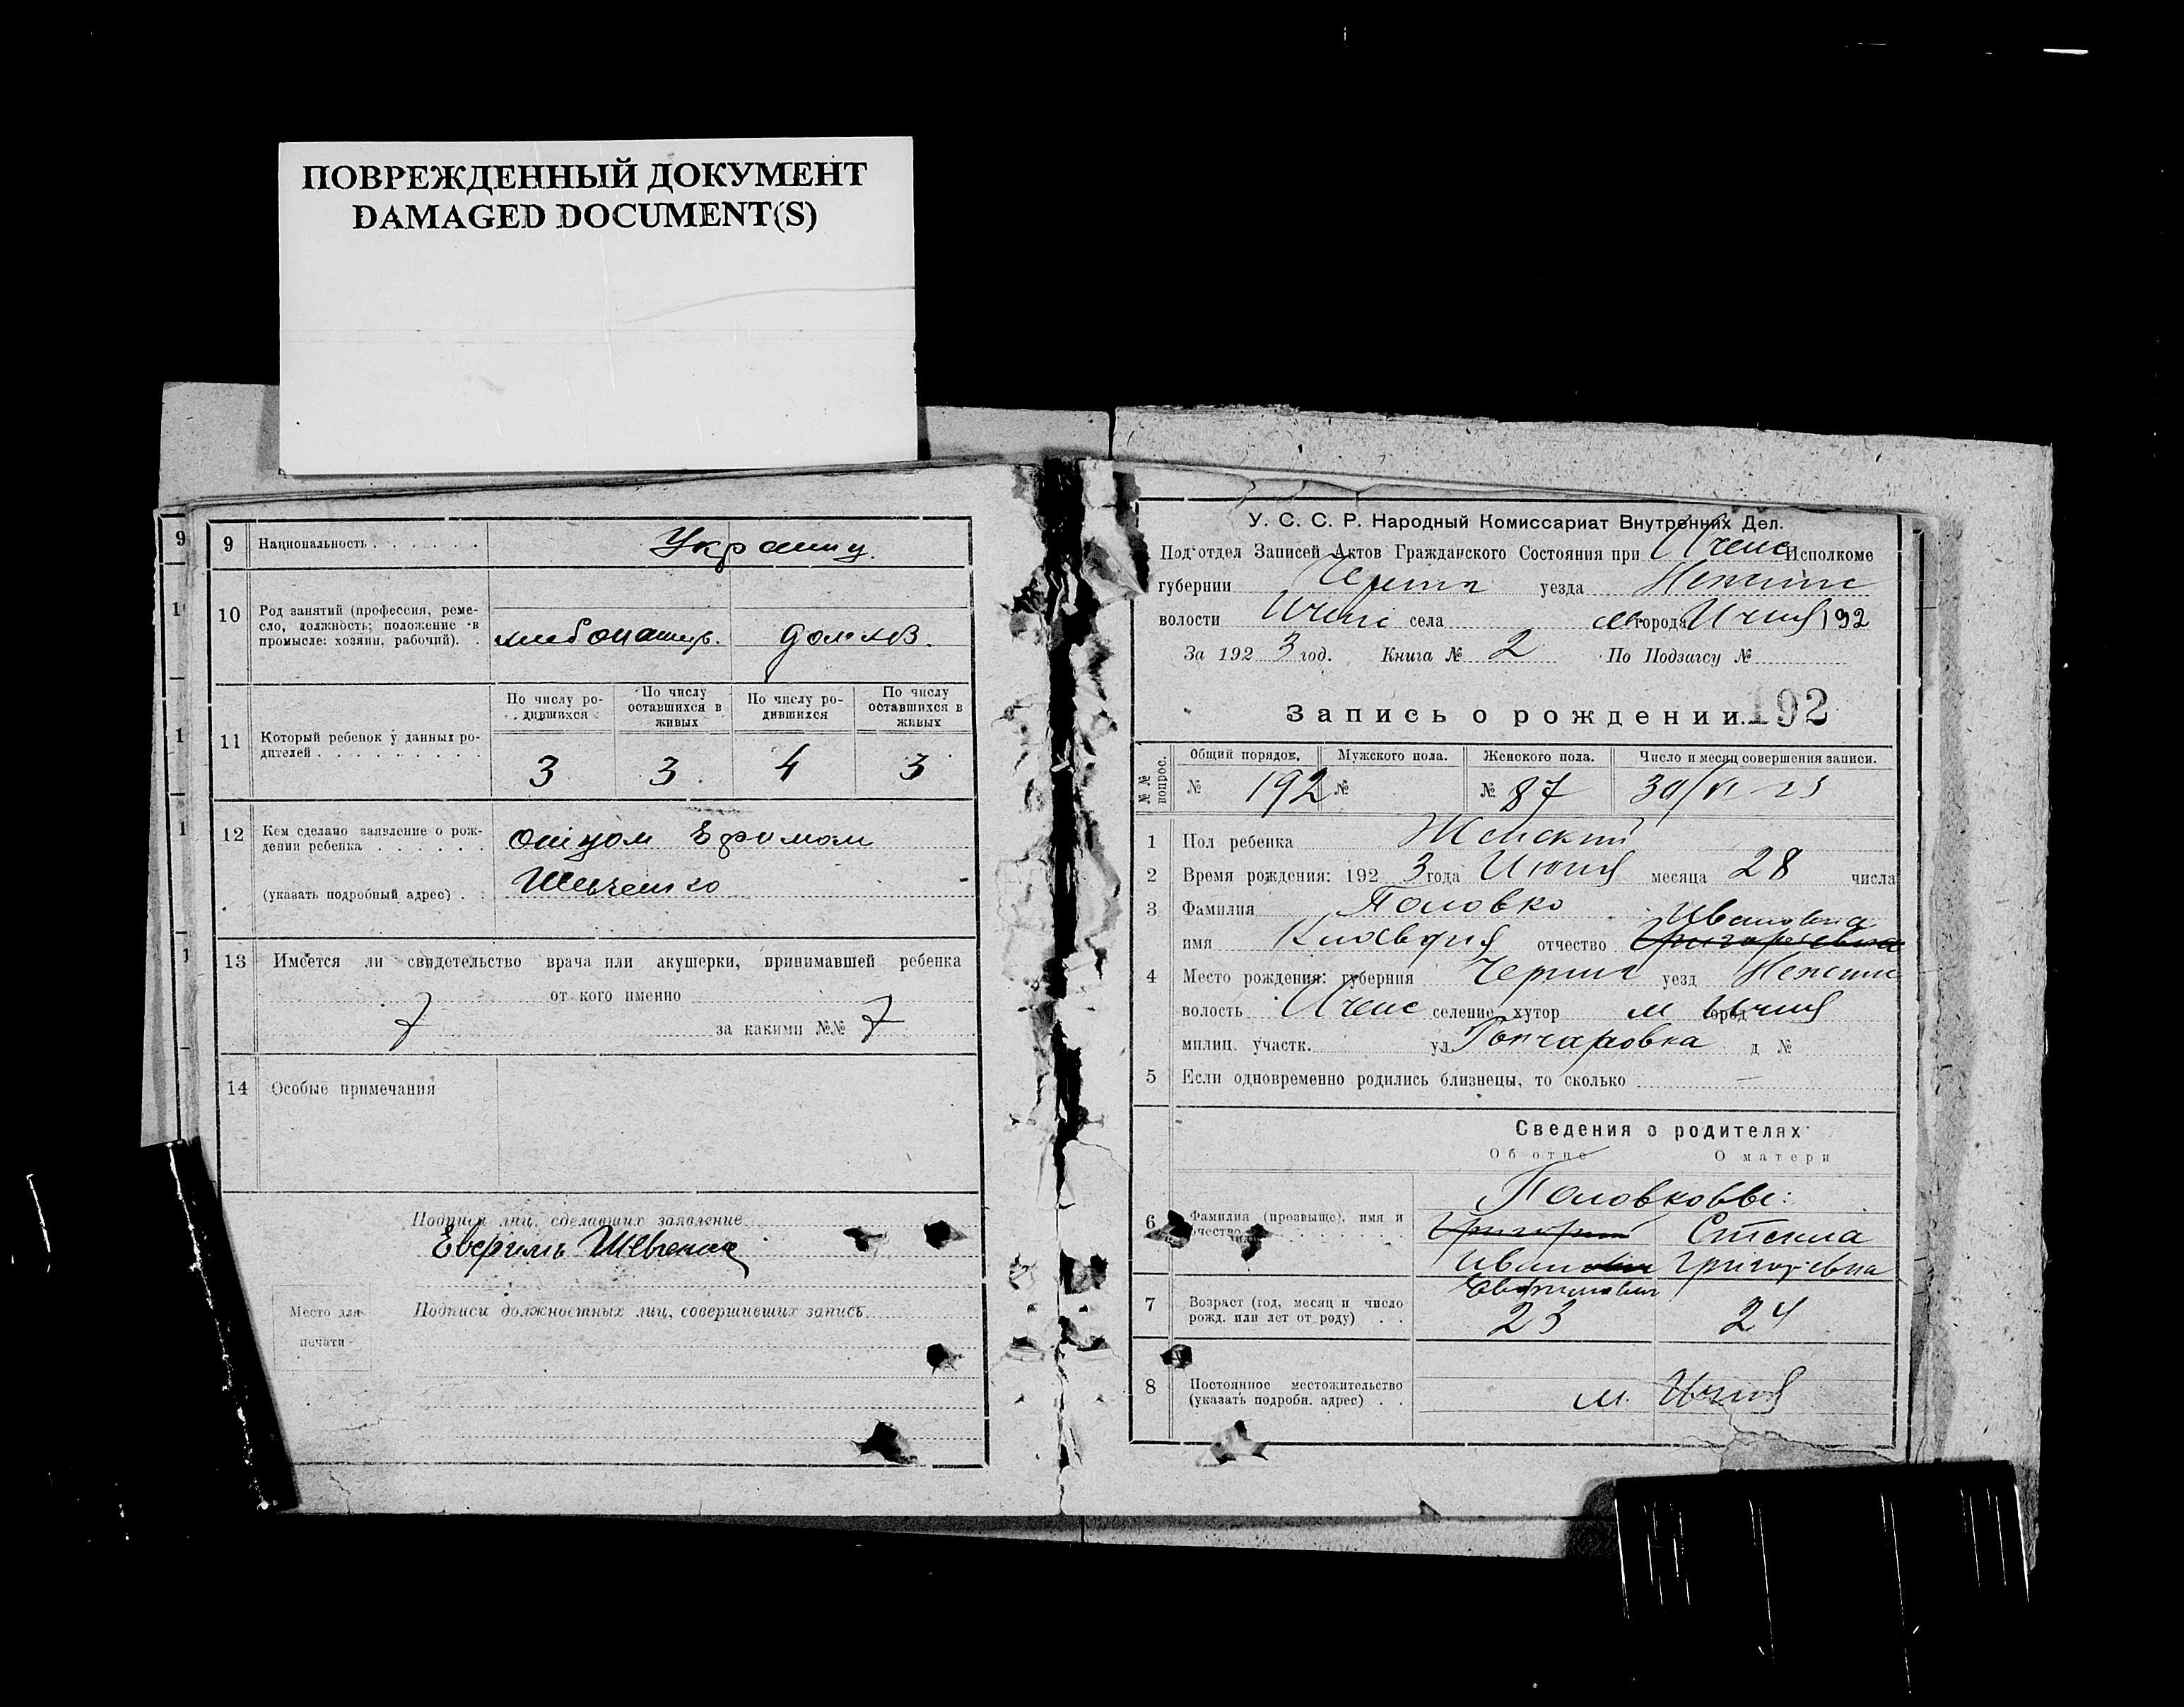 ПОВРЕЖДЕННЫЙ ДОКУМЕНТ
DAMAGED DOCUMENT(S)
9
1
1
1
1
9 Национальность . . . . . . Украинц.
10 Род занятий (профессия, реме-
сло, должность; положение в
промысле: хозяин, рабочий). . хлебопашец. домхоз.
11 Который ребенок у данных ро-
дителей . . . . . . . . . .
По числу ро-
дившихся
По числу
оставшихся в
живых
По числу ро-
дившихся
По числу
оставшихся в
живых
3 3. 4 3
12 Кем сделано заявление о рож-
дении ребенка . . . . . . отцом Ефимом
(указать подробный адрес) . . Шевченко
13 Имеется ли свидетельство врача или акушерки, принимавшей ребенка
от кого именно
за какими №№
14 Особые примечания
Подписи лиц, сделавших заявление
Шевченко
Место для
печати
Подписи должностных лиц, совершивших запись
У. С. С. Р. Народный Комиссариат Внутренних Дел.
Под'отдел Записей Актов Гражданского Состояния при Иченс Исполкоме
губернии Черниг уезда Нежинс
волости Иченс села м города Ичня 192
За 1923 год. Книга № 2 По Подзагсу №
Запись о рождении 192
№№ вопрос.
Общий порядок. Мужского пола. Женского пола. Число и месяц совершения записи.
№ 192 № № 87 30/VI 23
1 Пол ребенка Женский
2 Время рождения: 1923 года Июня месяца 28 числа
3 Фамилия Половко Ивановна
имя Клавдия отчество Григорьевна
4 Место рождения: губерния Черниг уезд Нежинс
волость Иченс селение, хутор м город Ичня
милиц. участк. ул. Гончаровка д №
5 Если одновременно родились близнецы, то сколько —
Сведения о родителях
Об отце О матери
Половковы:
6 Фамилия (прозвище), имя и
отчество . . . . . Григорий Степа
Иван Григорьевна
7 Возраст (год, месяц и число
рожд. или лет от роду) . . 23 24
8 Постоянное местожительство
(указать подробн. адрес) . . м. Ичня